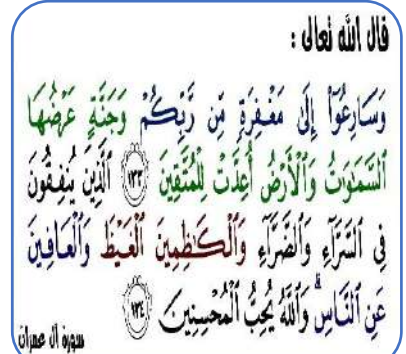 قال الله تعالى :
وَسَارِعُوٓا۟ إِلَىٰ مَغْفِرَةٍ مِّن رَّبِّكُمْ وَجَنَّةٍ عَرْضُهَا
ٱلسَّمَٰوَٰتُ وَٱلْأَرْضُ أُعِدَّتْ لِلْمُتَّقِينَ ۝١٣٣ ٱلَّذِينَ يُنفِقُونَ
فِى ٱلسَّرَّآءِ وَٱلضَّرَّآءِ وَٱلْكَٰظِمِينَ ٱلْغَيْظَ وَٱلْعَافِينَ
عَنِ ٱلنَّاسِ ۗ وَٱللَّهُ يُحِبُّ ٱلْمُحْسِنِينَ ۝١٣٤
سورة آل عمران